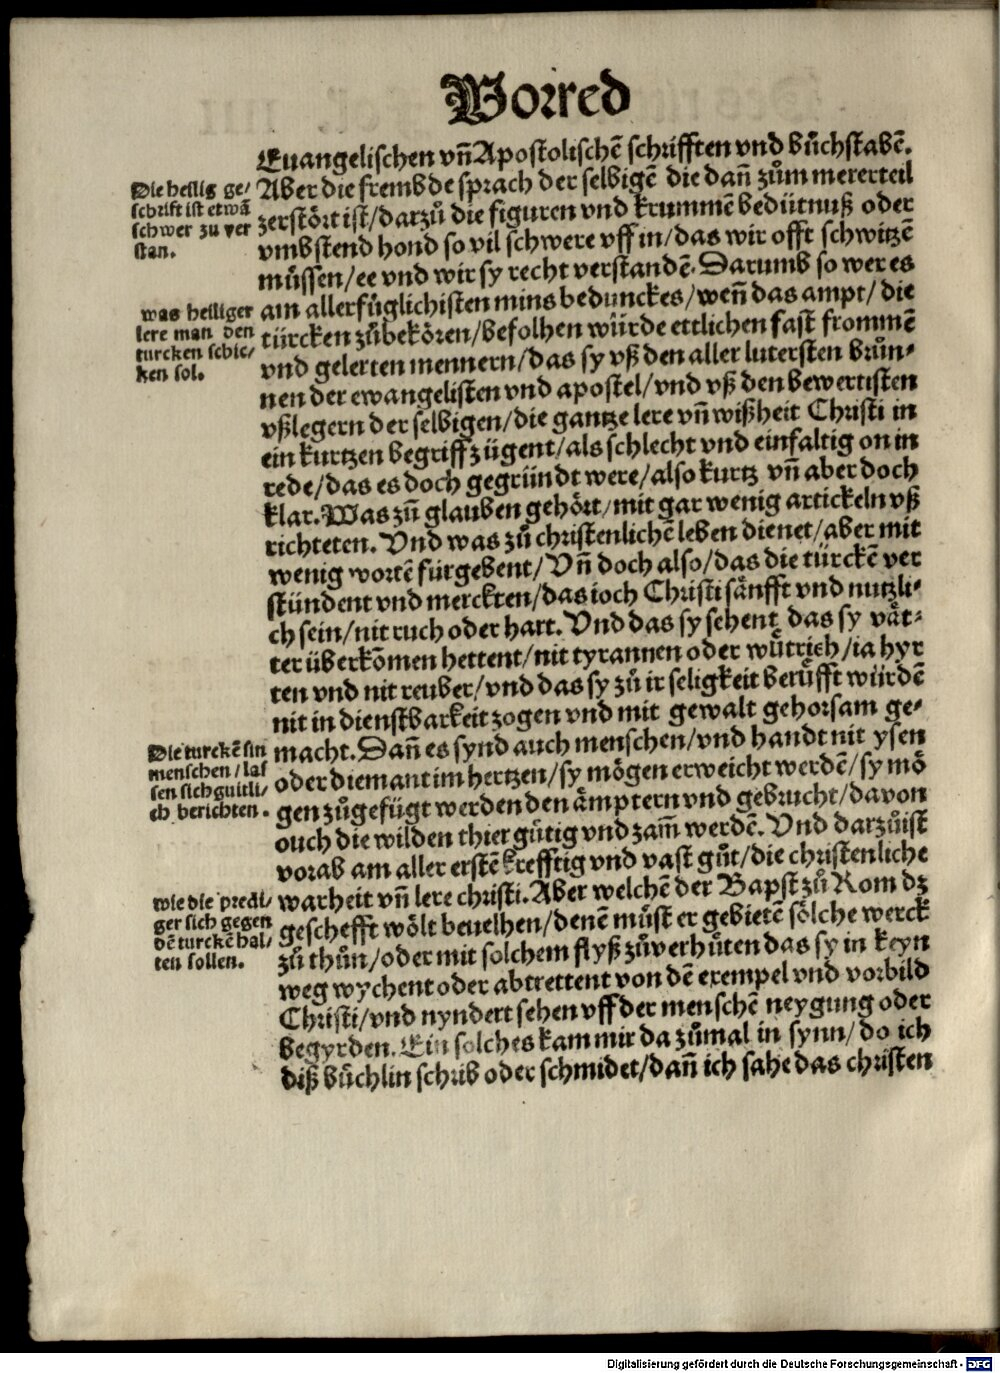 Vorred
Euangelischen vñ Apostolischē schrifften vnd bůchstabē.
Aber die frembde sprach der selbigē die dañ zům mererteil
zerstört ist/darzů die figuren vnd krummē bedütnuß oder
vmbstend hond so vil schwere vff in/das wir offt schwitzē
müssen/ee vnd wir sy recht verstandē. Darumb so wer es
am allerfüglichisten mins bedunckes/weñ das ampt/die
türcken zůbekören/befolhen würde ettlichen fast frommē
vnd gelerten mennern/das sy vß den aller lutersten brun-
nen der ewangelisten vnd apostel/vnd vß den bewertisten
vßlegern der selbigen/die gantze lere vñ wißheit Christi in
ein kurtzen begriff zügent/als schlecht vnd einfaltig on in
rede/das es doch gegründt were/also kurtz vñ aber doch
klar. Was zů glauben gehört/mit gar wenig artickeln vß
richteten. Vnd was zů christenlichē leben dienet/aber mit
wenig wortē fürgebent/Vñ doch also/das die türckē ver
stündent vnd merckten/das ioch Christi sänfft vnd nutzli-
ch sein/nit ruch oder hart. Vnd das sy sehent, das sy vät-
ter überkōmen hettent/nit tyrannen oder wütrich/ia hyr
ten vnd nit reuber/vnd das sy zů ir seligkeit berůfft würdē
nit in dienstbarkeit zogen vnd mit gewalt gehorsam ge-
macht. Dañ es synd auch menschen/vnd handt nit ysen
oder diemant im hertzen/sy mögen erweicht werdē/sy mö
gen zůgefügt werden den ämptern vnd gebrucht/davon
ouch die wilden thier gütig vnd zam̄ werdē. Vnd darzů ist
vorab am aller erstē krefftig vnd vast gůt/die christenliche
warheit vñ lere christi. Aber welchē der Bapst zů Rom dz
geschefft wölt beuelhen/denē můst er gebietē sölche werck
zů thůn/oder mit solchem flyß zůverhüten das sy in keyn
weg wychent oder abtrettent von dē exempel vnd vorbild
Christi/vnd nyndert sehen vff der menschē neygung oder
begyrden. Ein solches kam mir da zůmal in synn/do ich
diß bůchlin schrib oder schmidet/dañ ich sahe das christen
Die heilig ge/
schrift ist etwā
schwer zu ver
stan.
was heiliger
lere man den
turcken schic/
ken sol.
Die turckē sin
menschen/las
sen sich guitli/
ch berichten.
wie die predi/
ger sich gegen
dē turckē hal/
ten sollen.
Digitalisierung gefördert durch die Deutsche Forschungsgemeinschaft - DFG